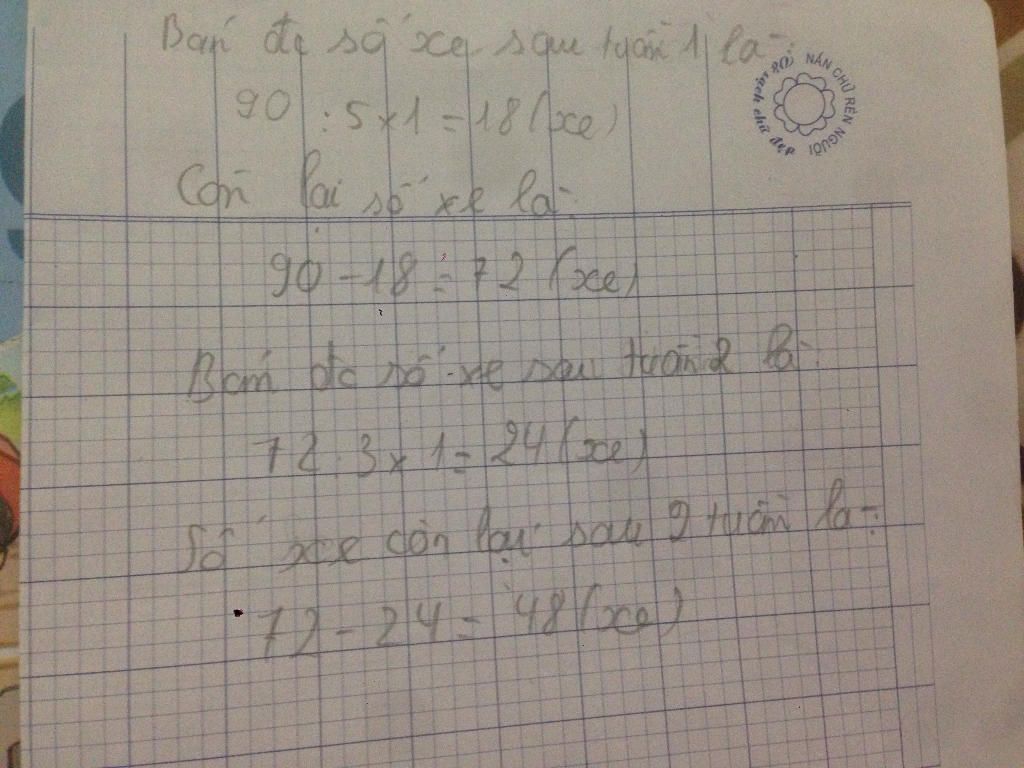 Bán đc số xe sau tuần 1 là:
90 : 5 x 1 = 18 (xe)
Còn lại số xe là:
90 - 18 = 72 (xe)
Bán đc số xe sau tuần 2 là:
72 : 3 x 1 = 24 (xe)
Số xe còn lại sau 2 tuần là:
72 - 24 = 48 (xe)
NẮN CHỮ RÈN NGƯỜI